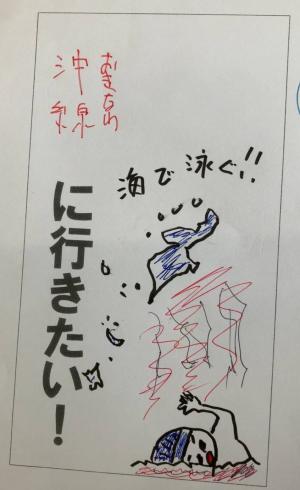 おきなわ
沖縄
に行きたい！
海で泳ぐ!!